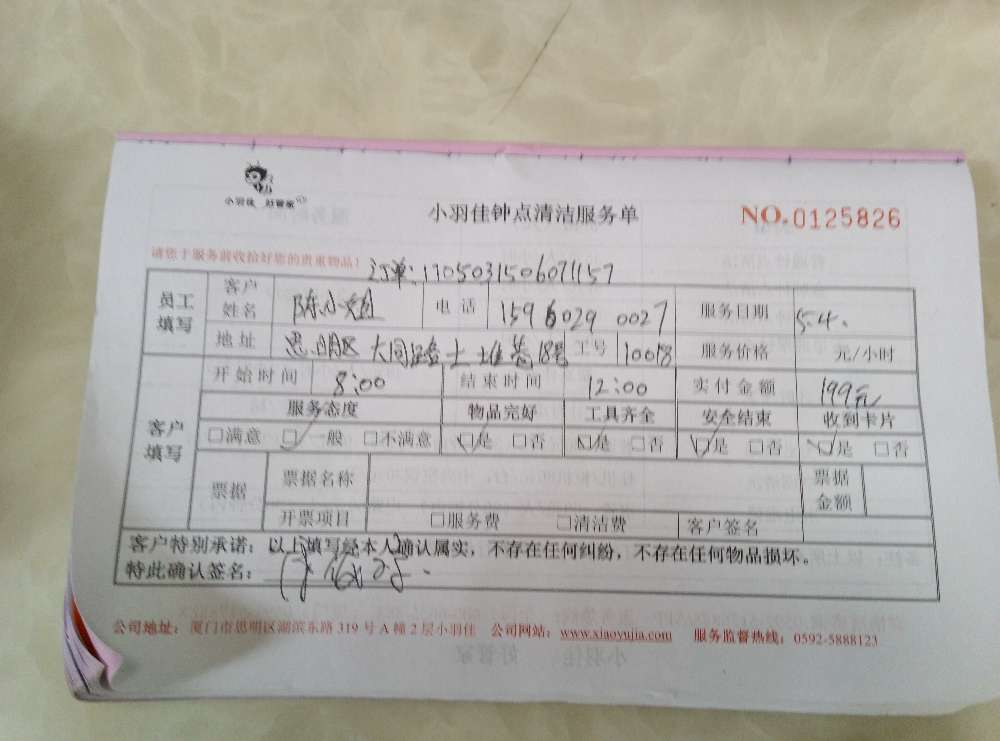 小羽佳 好管家
小羽佳钟点清洁服务单
NO.0125826
请您于服务前收拾好您的贵重物品!
订单:170503150607115 7
员工填写 客户姓名 陈小姐 电话 159 6029 0027 服务日期 5.4.
地址 思明区大同路土堆巷18号 工号 10018 服务价格 元/小时
客户填写 开始时间 8:00 结束时间 12:00 实付金额 199元
服务态度 物品完好 工具齐全 安全结束 收到卡片
□满意 □一般 □不满意 □是 □否 □是 □否 □是 □否 □是 □否
票据 票据名称 票据金额
开票项目 □服务费 □清洁费 客户签名
客户特别承诺:以上填写经本人确认属实,不存在任何纠纷,不存在任何物品损坏。
特此确认签名:
公司地址:厦门市思明区湖滨东路 319 号 A 幢 2 层小羽佳 公司网站:www.xiaoyujia.com 服务监督热线:0592-5888123